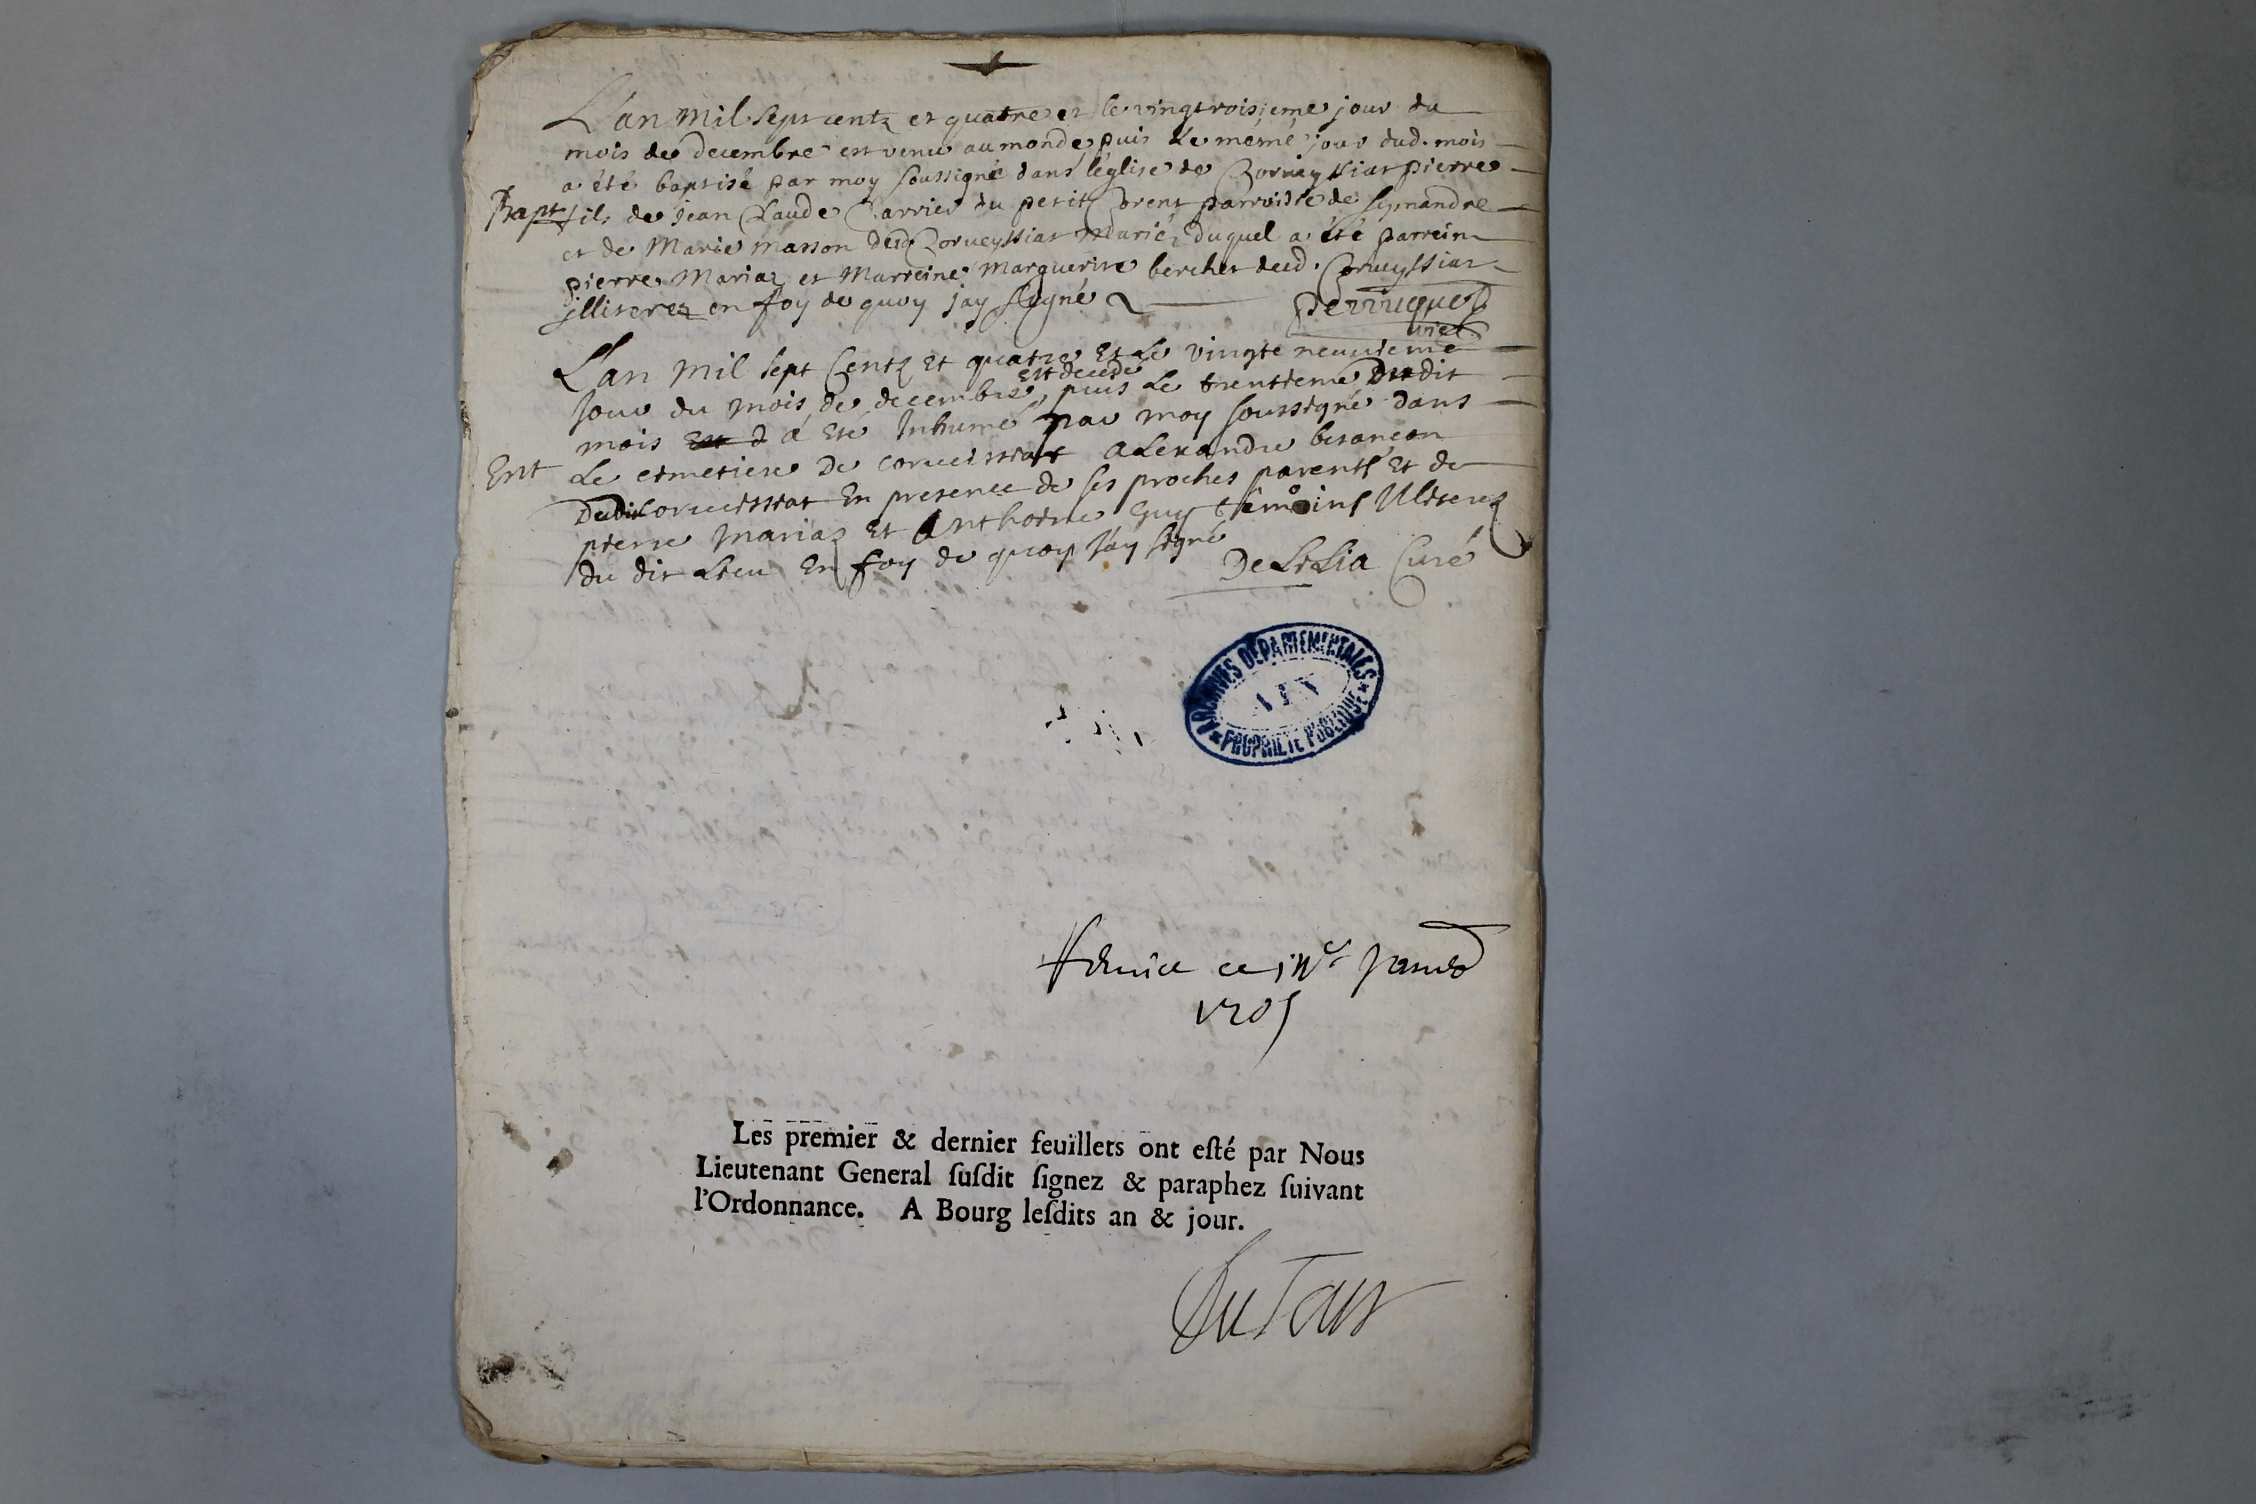 L'an mil sept centz et quatre et le vingtroisieme jour du
mois de decembre est venu au monde puis le même jour dud. mois
a été baptisé par moy soussigné dans l'église de Corveyssiat pierre
Bapt fils de jean Claude Carrier du petit Corent parroisse de Symandre
et de Marie masson dud Corveyssiat Mariéz duquel a été parrein
pierre Mariaz et Marreine Marguerite berchet dud. Corveyssiat
illiterez en foy de quoy jay signé Perruquet
vic
L'an mil sept Centz et quatre Et Le vingte neuvieme
est decede
Jour du mois de decembre puis Le trentieme Dudit
mois a Eté Inhumé par moy soussigné dans
Ent Le cimetiere De corveissiat alexandre besancon
Dudit corveissiat En presence de ses proches parents Et de
pierre Mariaz Et Anthoine Guy témoins Illiterez
du dit Lieu En foy de quoy J'ay signé
De LiLia Curé
ARCHIVES DÉPARTEMENTALES
AIN
PROPRIÉTÉ PUBLIQUE
1705
Les premier & dernier feuillets ont esté par Nous
Lieutenant General susdit signez & paraphez suivant
l'Ordonnance. A Bourg lesdits an & jour.